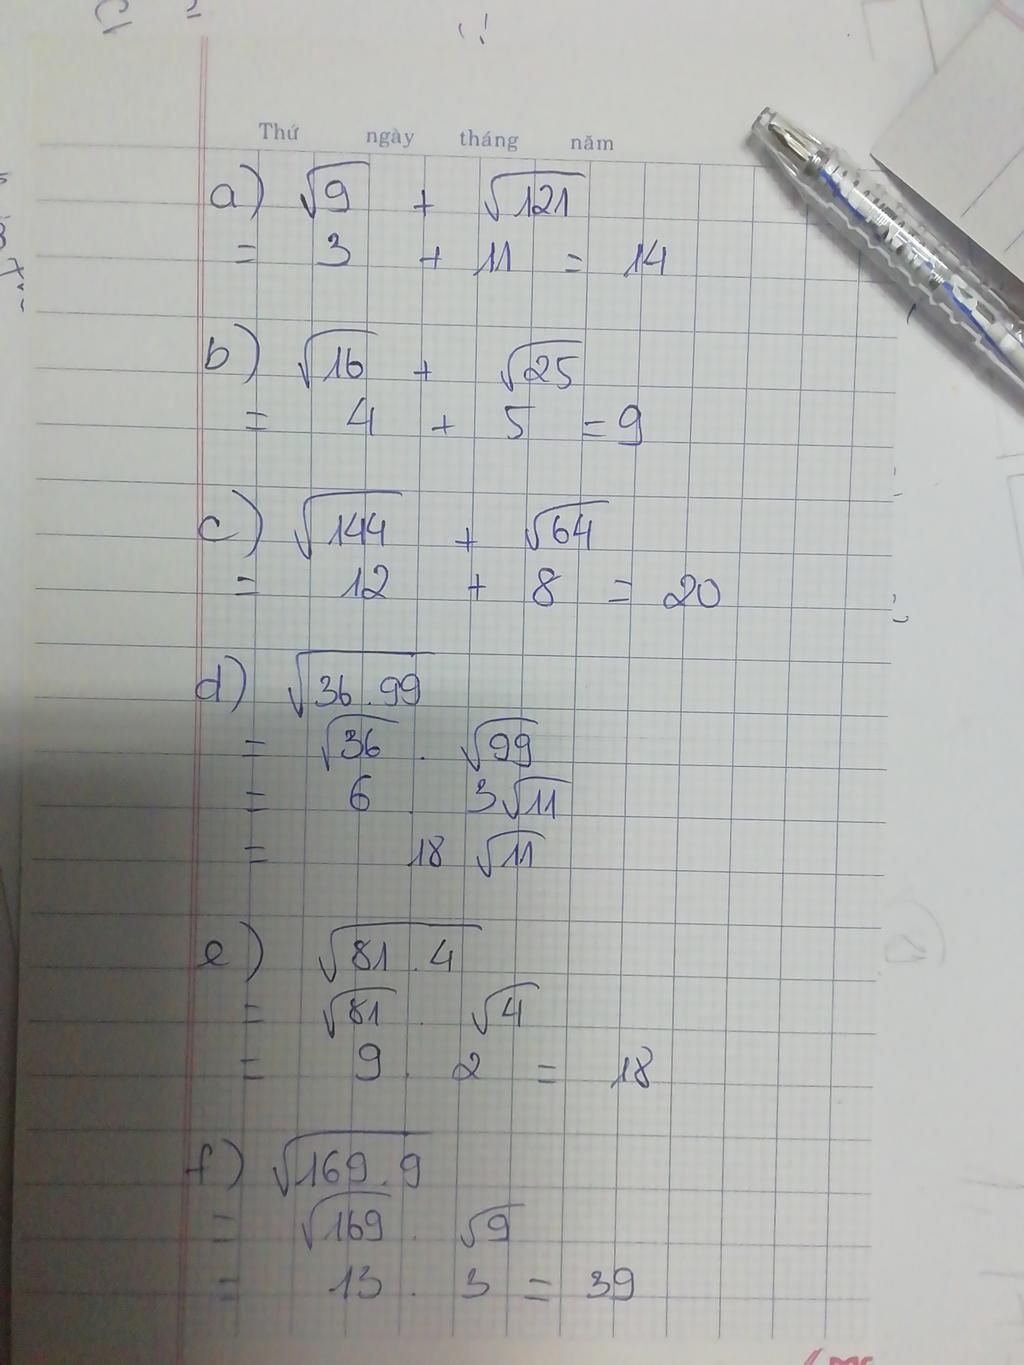 Thứ ngày tháng năm
a) √9 + √121
= 3 + 11 = 14
b) √16 + √25
= 4 + 5 = 9
c) √144 + √64
= 12 + 8 = 20
d) √36.99
= √36 . √99
= 6 . 3√11
= 18 √11
e) √81.4
= √81 . √4
= 9 . 2 = 18
f) √169.9
= √169 . √9
= 13 . 3 = 39